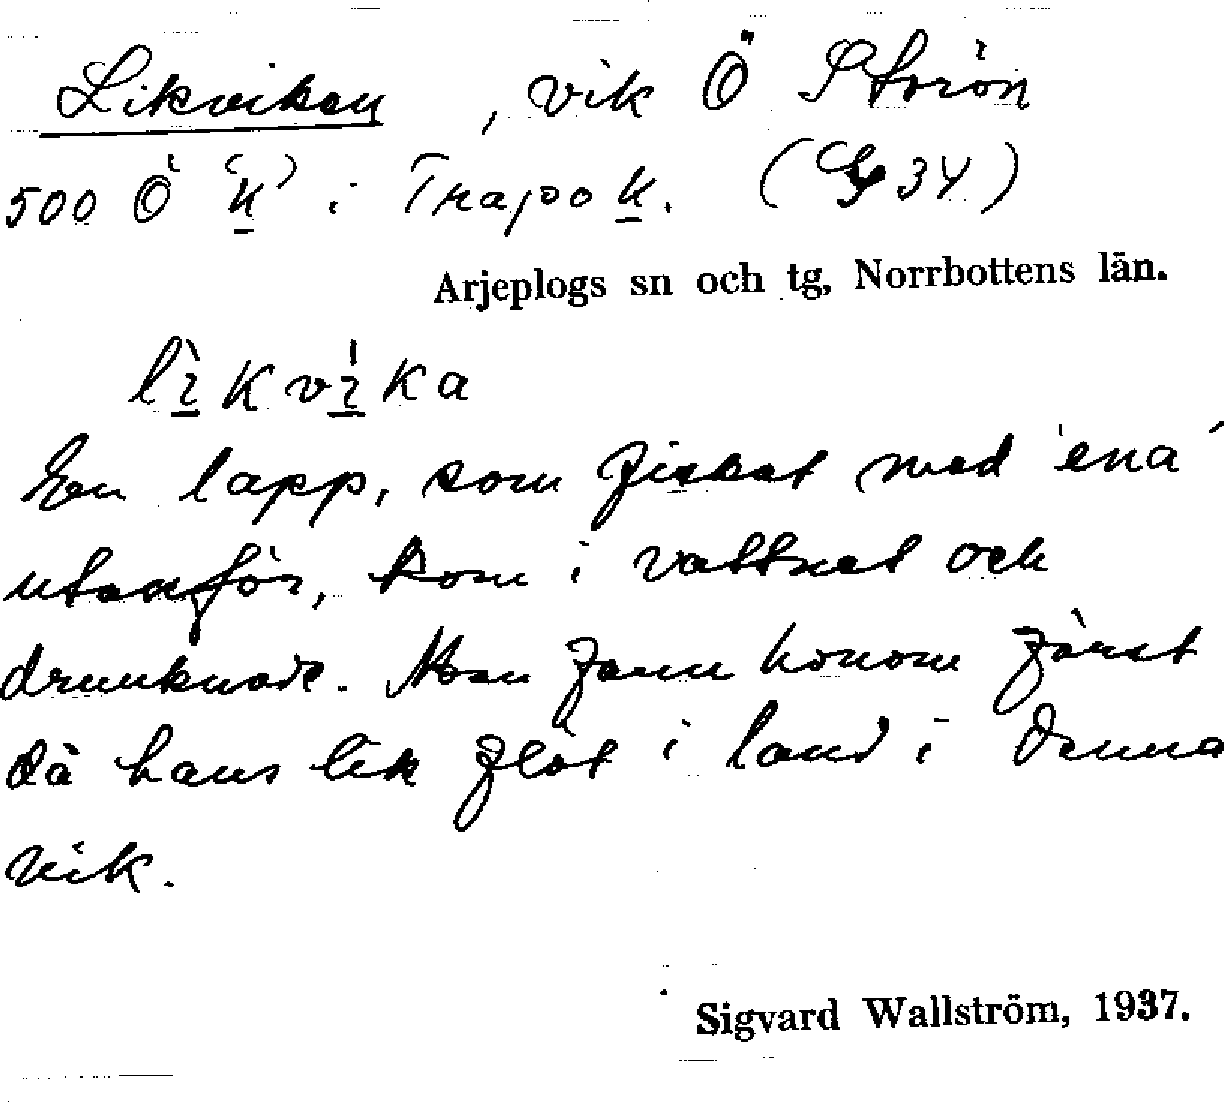 Likviken, vik Ö Storön
500 Ö "k" i Trapook. (G 34)
Arjeplogs sn och tg, Norrbottens län.
lìkvìka
En lapp, som fiskat med 'ena'
utanför, kom i vattnet och
drunknade. Man fann honom först
då hans lik flöt i land i denna
vik.
Sigvard Wallström, 1937.